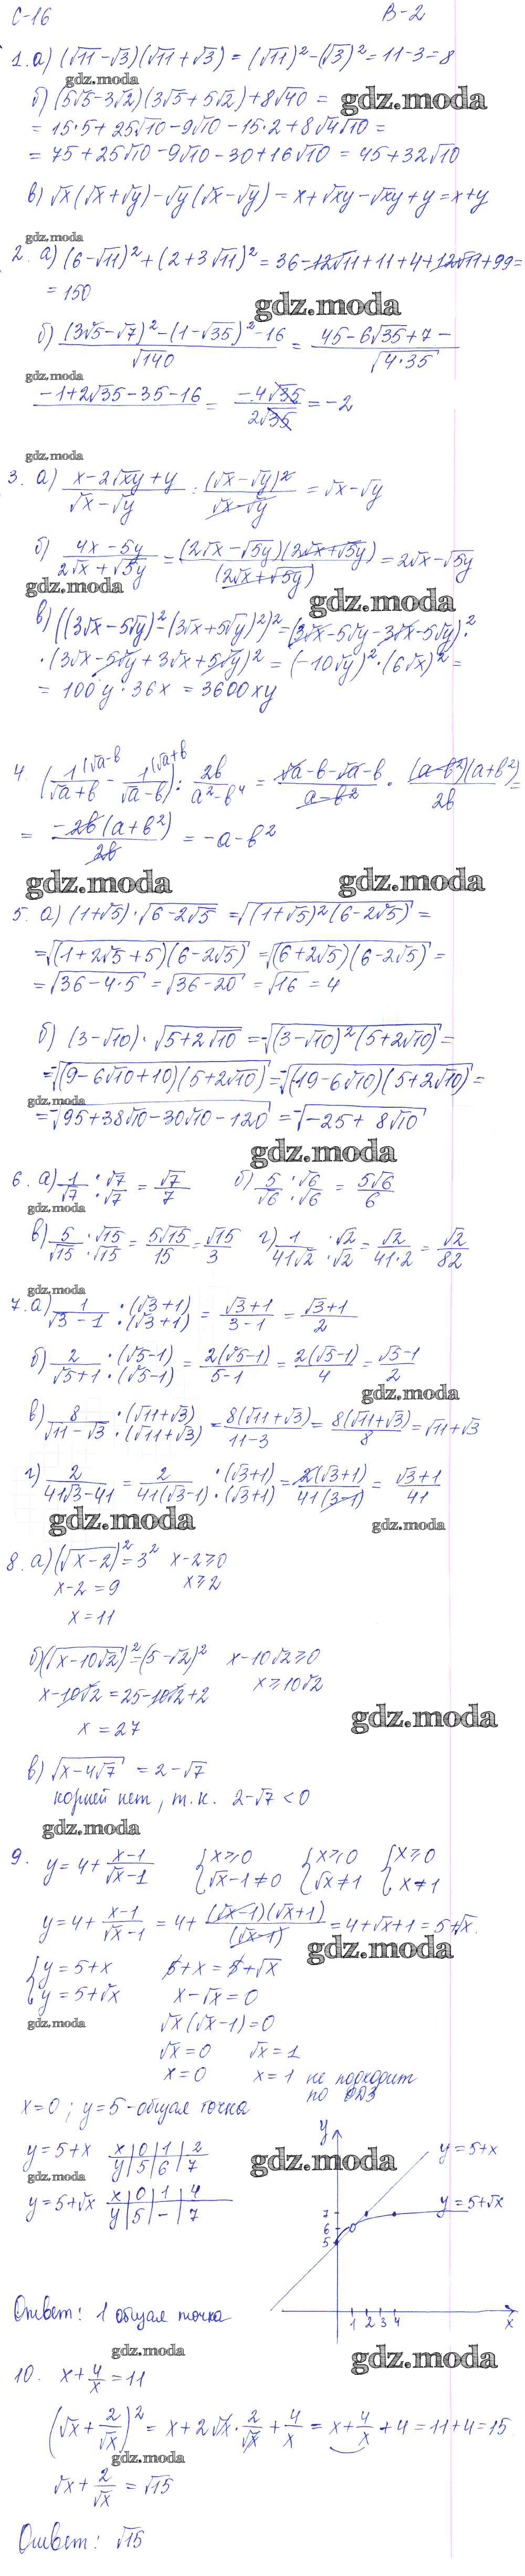 С-16 В-2
1. а) (√11 - √3)(√11 + √3) = (√11)² - (√3)² = 11 - 3 = 8
gdz.moda
б) (5√5 - 3√2)(3√5 + 5√2) + 8√40 =
gdz.moda
= 15·5 + 25√10 - 9√10 - 15·2 + 8√4√10 =
= 75 + 25√10 - 9√10 - 30 + 16√10 = 45 + 32√10
в) √x(√x + √y) - √y(√x - √y) = x + √xy - √xy + y = x + y
gdz.moda
2. а) (6 - √11)² + (2 + 3√11)² = 36 - 12√11 + 11 + 4 + 12√11 + 99 =
= 150
gdz.moda
б) ((3√5 - √7)² - (1 - √35)² - 16)/√140 = (45 - 6√35 + 7 -
gdz.moda
- 1 + 2√35 - 35 - 16)/√(4·35) = -4√35/2√35 = -2
gdz.moda
3. а) (x - 2√xy + y)/(√x - √y) = (√x - √y)²/(√x - √y) = √x - √y
б) (4x - 5y)/(2√x + √5y) = (2√x - √5y)(2√x + √5y)/(2√x + √5y) = 2√x - √5y
gdz.moda
gdz.moda
в) ((3√x - 5√y)² - (3√x + 5√y)²)² = (3√x - 5√y - 3√x - 5√y)² ·
· (3√x - 5√y + 3√x + 5√y)² = (-10√y)² · (6√x)² =
= 100y · 36x = 3600xy
4. (1(√a-b/(√a+b) - 1(√a+b/(√a-b)) : 2b/(a²-b⁴) = (√a - b - √a - b)/(a - b²) · (a-b²)(a+b²)/2b =
= -2b(a+b²)/2b = -a - b²
gdz.moda
gdz.moda
5. а) (1+√5)·√(6-2√5) = √((1+√5)²(6-2√5)) =
= √((1+2√5+5)(6-2√5)) = √((6+2√5)(6-2√5)) =
= √(36-4·5) = √(36-20) = √16 = 4
б) (3-√10)·√(5+2√10) = -√((3-√10)²(5+2√10)) =
= -√((9-6√10+10)(5+2√10)) = -√((19-6√10)(5+2√10)) =
gdz.moda
= -√(95+38√10-30√10-120) = -√(-25+8√10)
gdz.moda
6. а) 1/√7 ·√7/·√7 = √7/7 б) 5/√6 ·√6/·√6 = 5√6/6
gdz.moda
в) 5/√15 ·√15/·√15 = 5√15/15 = √15/3 г) 1/41√2 ·√2/·√2 = √2/41·2 = √2/82
gdz.moda
7. а) 1/(√3-1) ·(√3+1)/·(√3+1) = (√3+1)/(3-1) = (√3+1)/2
б) 2/(√5+1) ·(√5-1)/·(√5-1) = 2(√5-1)/(5-1) = 2(√5-1)/4 = (√5-1)/2
gdz.moda
в) 8/(√11-√3) ·(√11+√3)/·(√11+√3) = 8(√11+√3)/(11-3) = 8(√11+√3)/8 = √11+√3
г) 2/(41√3-41) = 2/41(√3-1) ·(√3+1)/·(√3+1) = 2(√3+1)/41(3-1) = (√3+1)/41
gdz.moda
gdz.moda
8. а) (√(x-2))² = 3² x-2⩾0
x-2 = 9 x⩾2
x = 11
б) (√(x-10√2))² = (5-√2)² x-10√2⩾0
x-10√2 = 25-10√2+2 x⩾10√2
x = 27
gdz.moda
в) √(x-4√7) = 2-√7
корней нет, т.к. 2-√7 < 0
gdz.moda
9. y = 4 + (x-1)/(√x-1) {x⩾0 √x-1≠0 {x⩾0 √x≠1 {x⩾0 x≠1
y = 4 + (x-1)/(√x-1) = 4 + (√x-1)(√x+1)/(√x-1) = 4+√x+1 = 5+√x.
gdz.moda
{y = 5+x 5+x = 5+√x
y = 5+√x x-√x = 0
gdz.moda
√x(√x-1) = 0
√x = 0 √x = 1
x = 0 x = 1 не подходит
по ОДЗ
x = 0; y = 5 - общая точка
y = 5+x x|0|1|2 y|5|6|7
gdz.moda
gdz.moda
y = 5+√x x|0|1|4 y|5|-|7
y
y = 5+x
y = 5+√x
7
6
5
1 2 3 4 x
Ответ: 1 общая точка
gdz.moda
gdz.moda
10. x + 4/x = 11
(√x + 2/√x)² = x + 2√x · 2/√x + 4/x = x + 4/x + 4 = 11+4 = 15
gdz.moda
√x + 2/√x = √15
Ответ: √15